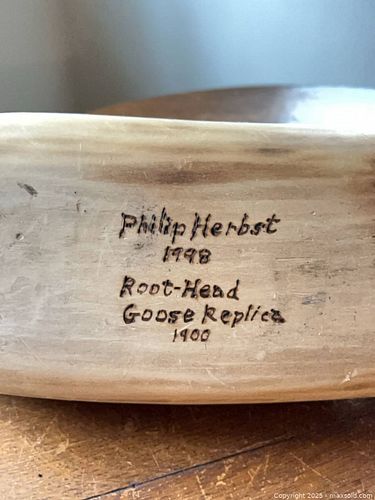 Philip Herbst
1998
Root-Head
Goose Replica
1900
Copyright 2025 - maxsold.com